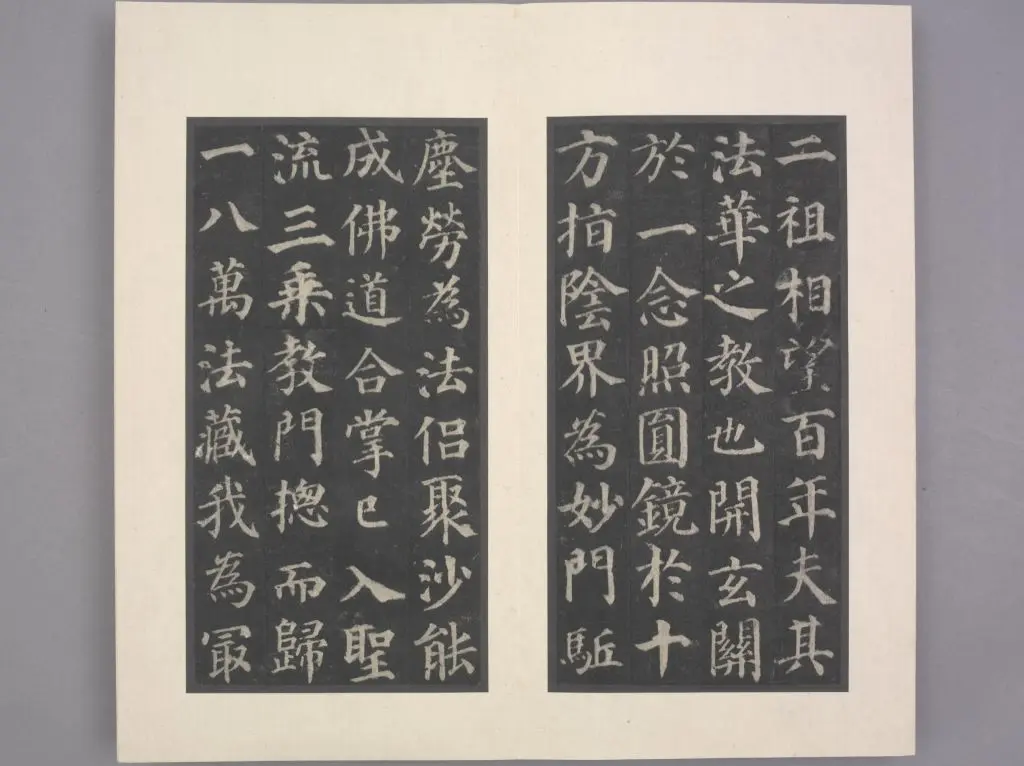 二祖相望百年夫其
法華之教也開玄關
於一念照圓鏡於十
方指陰界為妙門駈
塵勞為法侶聚沙能
成佛道合掌已入聖
流三乗教門揔而歸
一八萬法藏我為冣